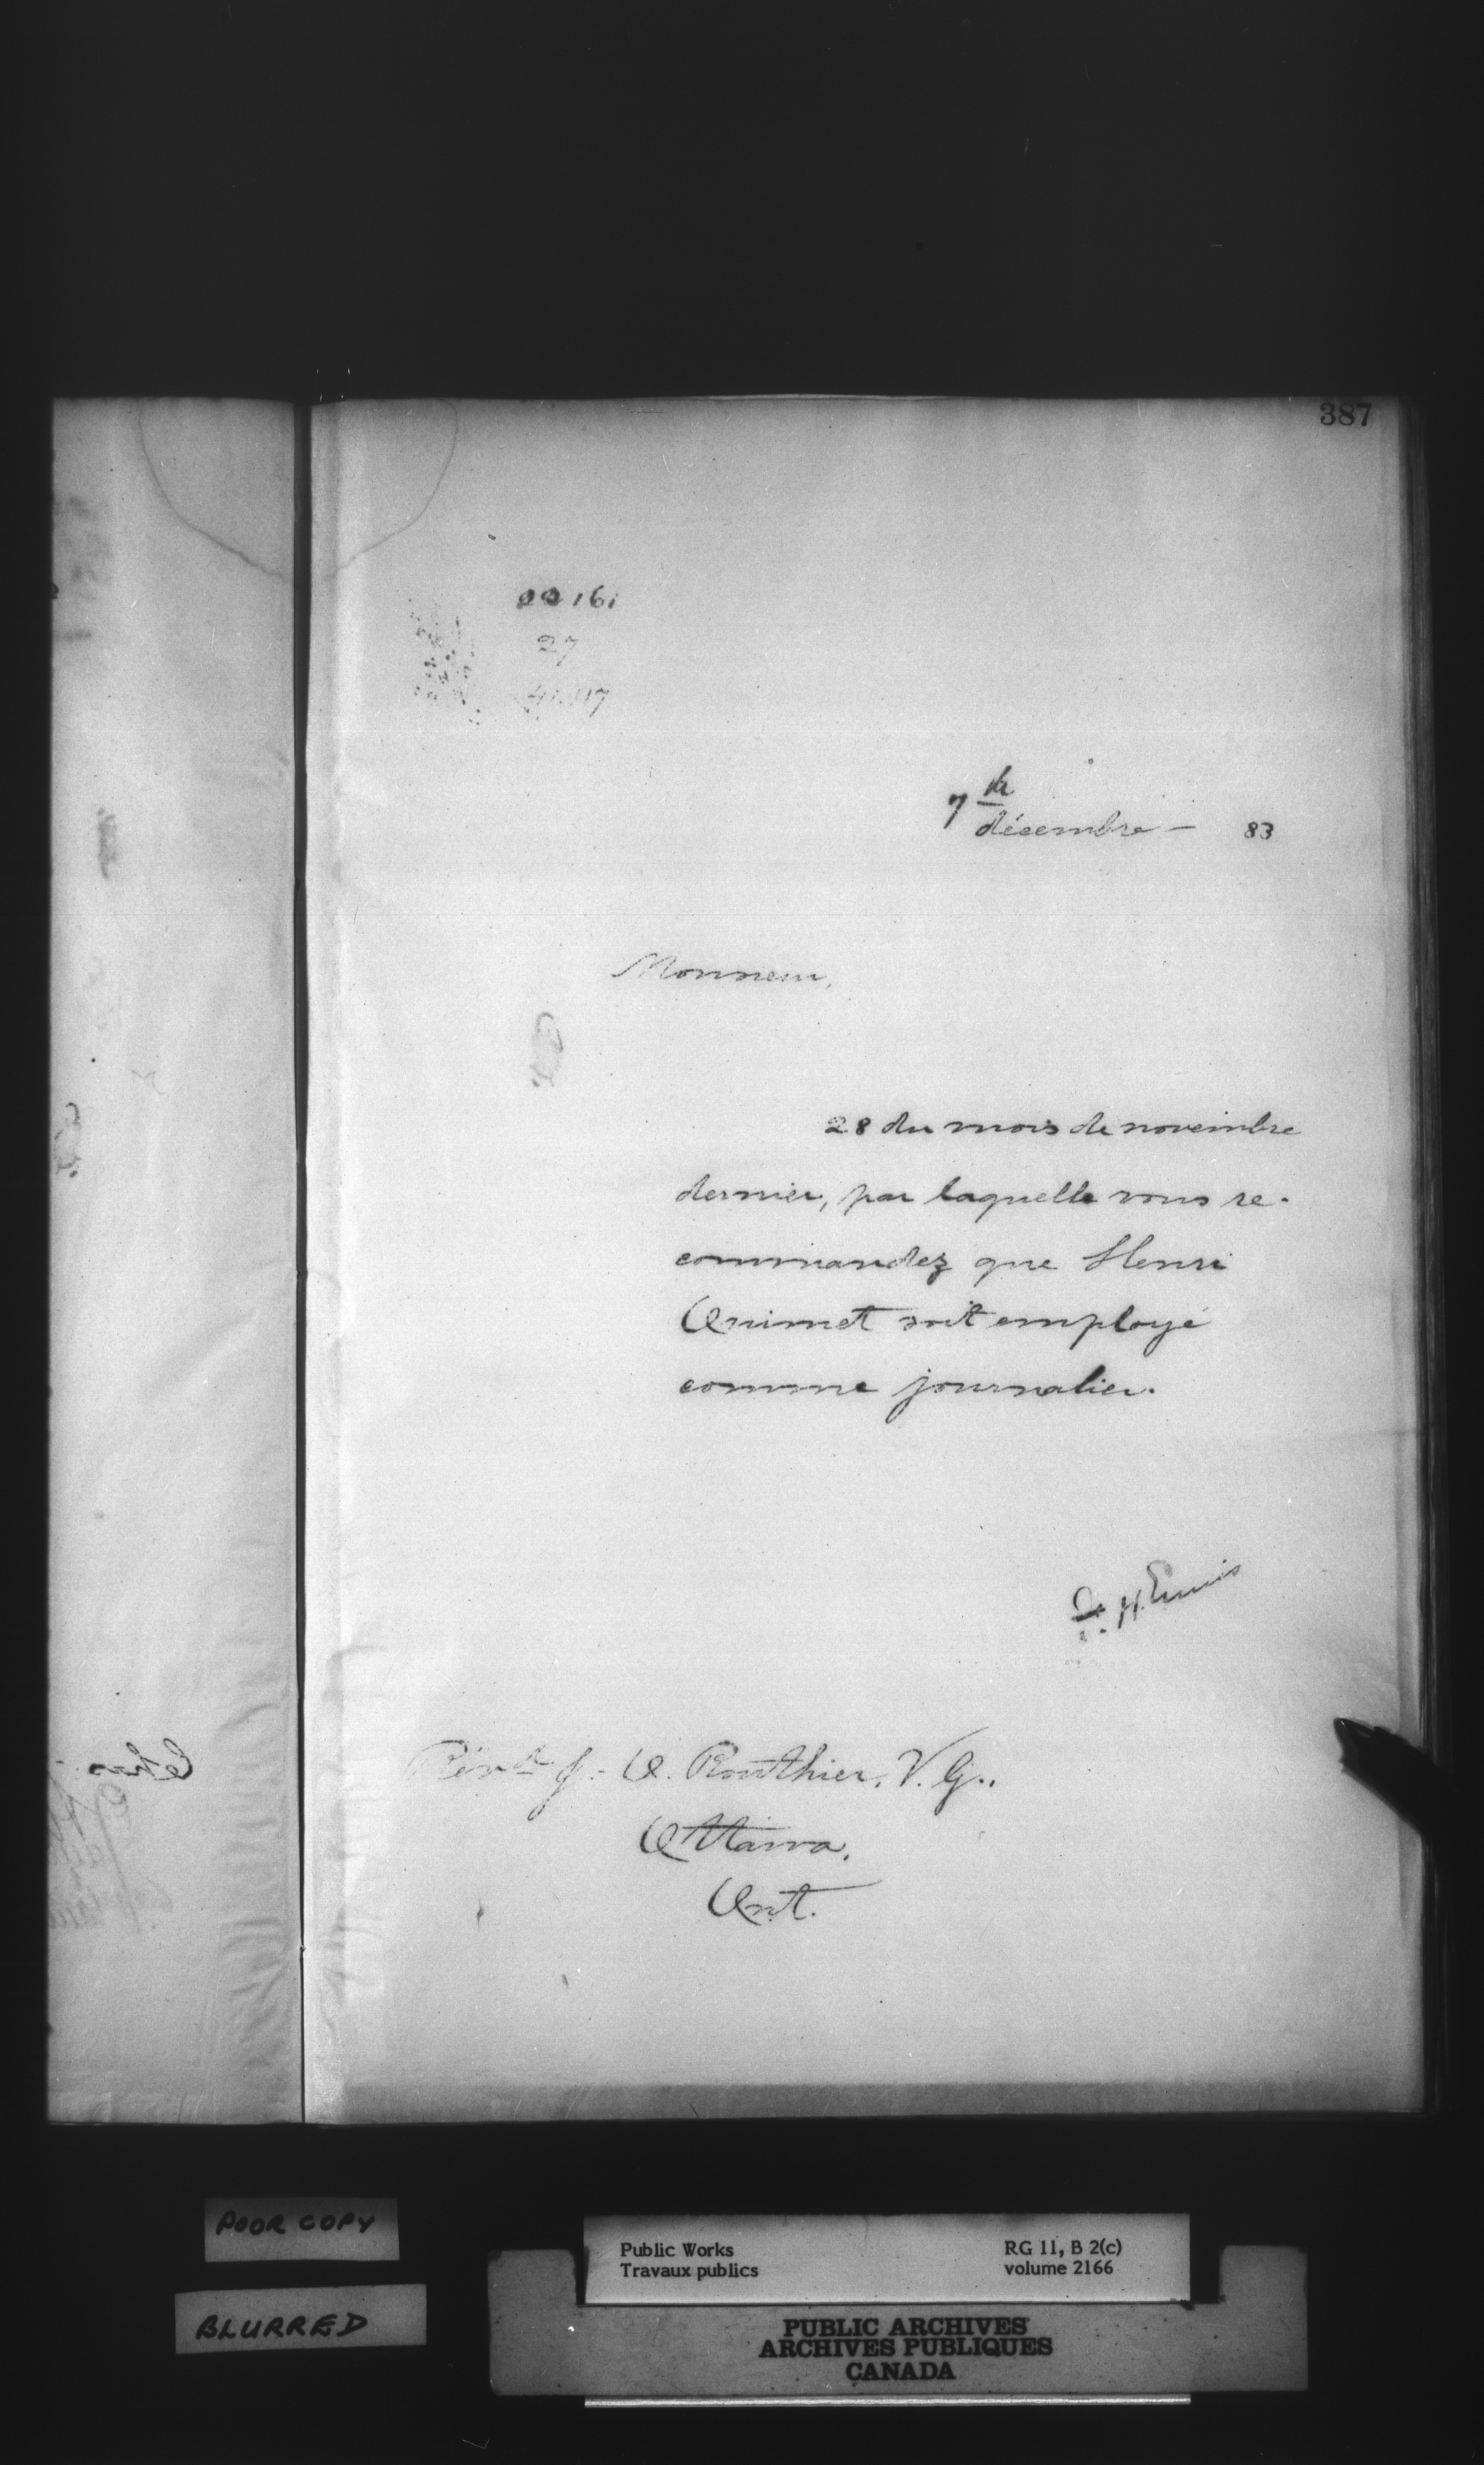 387
161
27
7th
décembre – 83
Monsieur,
28 du mois de novembre
dernier, par laquelle vous re-
commandez que Henri
Ouimet soit employé
comme journalier.
F. H. Ennis
Révd J. O. Routhier, V. G.,
Ottawa,
Ont.
POOR COPY
BLURRED
Public Works
Travaux publics
RG 11, B 2(c)
volume 2166
PUBLIC ARCHIVES
ARCHIVES PUBLIQUES
CANADA